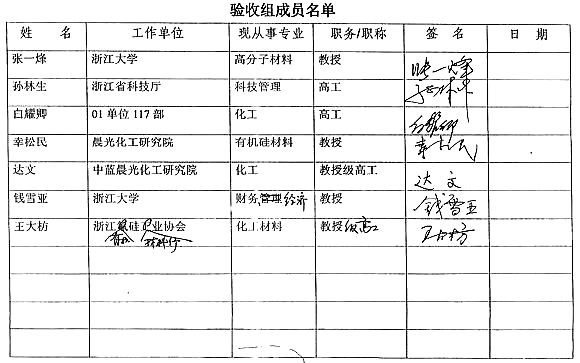 验收组成员名单
姓 名 工作单位 现从事专业 职务/职称 签 名 日 期
张一烽 浙江大学 高分子材料 教授 张一烽
孙林生 浙江省科技厅 科技管理 高工
白耀卿 01单位117部 化工 高工 白耀卿
幸松民 晨光化工研究院 有机硅材料 教授 幸松民
达文 中蓝晨光化工研究院 化工 教授级高工 达文
钱雪亚 浙江大学 财务管理经济 教授 钱雪亚
王大枋 浙江 硅企业协会 化工材料 教授级高工 王大枋
材料行